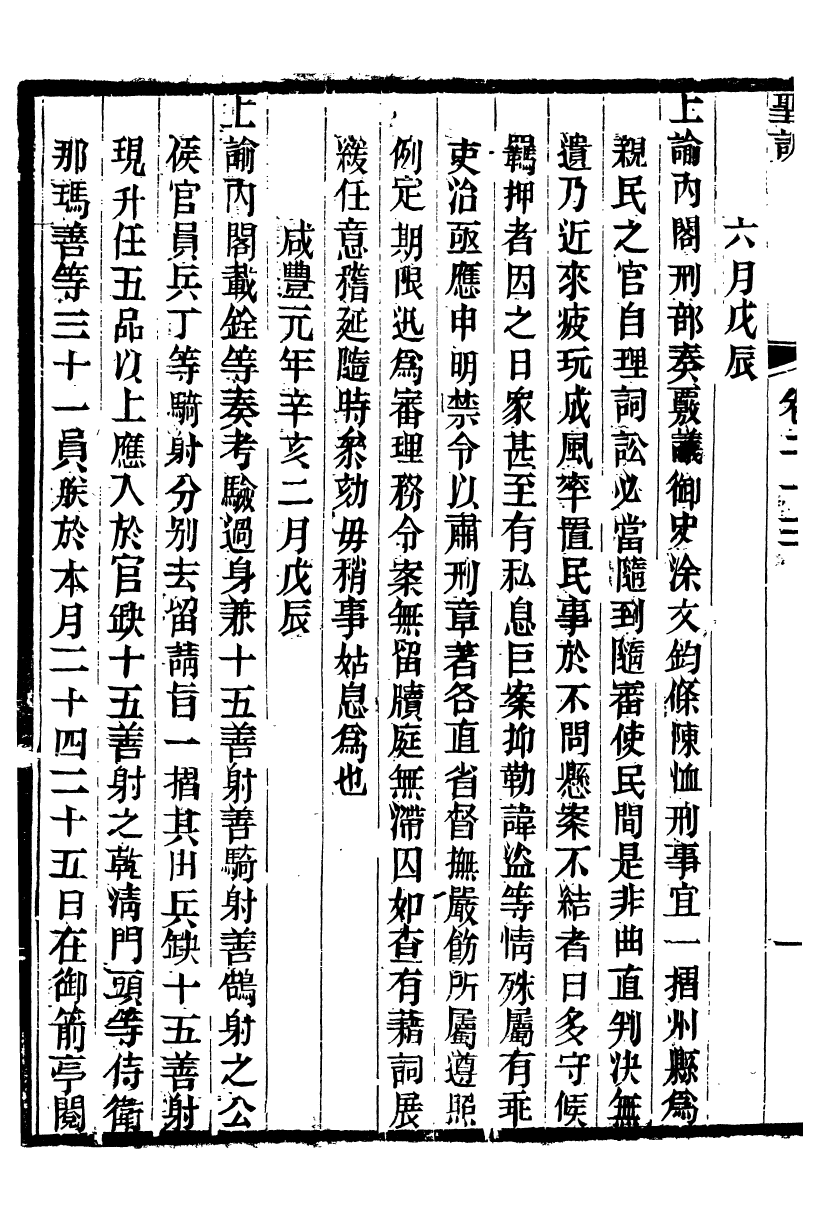 聖訓 卷二十三 一
六月戊辰
上諭內閣刑部奏覈議御史涂文鈞條陳恤刑事宜一摺州縣為
親民之官自理詞訟必當隨到隨審使民間是非曲直判決無
遺乃近來疲玩成風率置民事於不問懸案不結者日多守候
羈押者因之日眾甚至有私息巨案抑勒諱盜等情殊屬有乖
吏治亟應申明禁令以肅刑章著各直省督撫嚴飭所屬遵照
例定期限迅為審理務令案無留牘庭無滯囚如查有藉詞展
緩任意稽延隨時叅劾毋稍事姑息為也
咸豐元年辛亥二月戊辰
上諭內閣載銓等奏考驗過身兼十五善射善騎射善鵠射之公
侯官員兵丁等騎射分別去留請旨一摺其由兵缺十五善射
現升任五品以上應入於官缺十五善射之乾清門頭等侍衛
那瑪善等三十一員朕於本月二十四二十五日在御箭亭閱